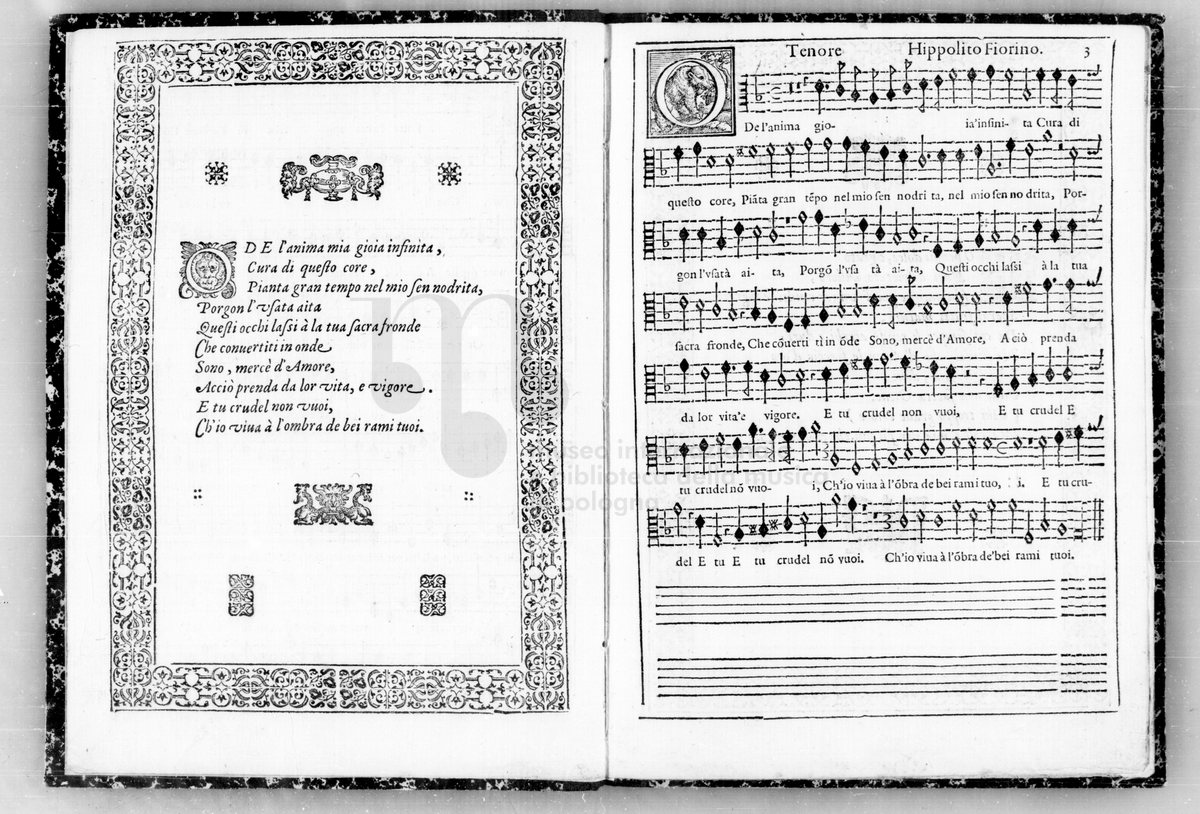 O DE l'anima mia gioia infinita,
Cura di questo core,
Pianta gran tempo nel mio sen nodrita,
Porgon l'vsata aita
Questi occhi lassi à la tua sacra fronde
Che conuertiti in onde
Sono, mercè d'Amore,
Acciò prenda da lor vita, e vigore.
E tu crudel non vuoi,
Ch'io viua à l'ombra de bei rami tuoi.
Tenore Hippolito Fiorino. 3
O De l'anima gio- ia'infini- ta Cura di
questo core, Piāta gran tēpo nel mio sen nodri ta, nel mio sen no drita, Por-
gon l'vsatà ai- ta, Porgō l'vsa tà ai- ta, Questi occhi lassi à la tua
sacra fronde, Che cōuerti ti in ōde Sono, mercè d'Amore, A ciò prenda
da lor vita'e vigore. E tu crudel non vuoi, E tu crudel E
tu crudel nō vuo- i, Ch'io viua à l'ōbra de bei rami tuo, i. E tu cru-
del E tu E tu crudel nō vuoi. Ch'io viua à l'ōbra de'bei rami tuoi.
museo internazionale
biblioteca della musica
bologna